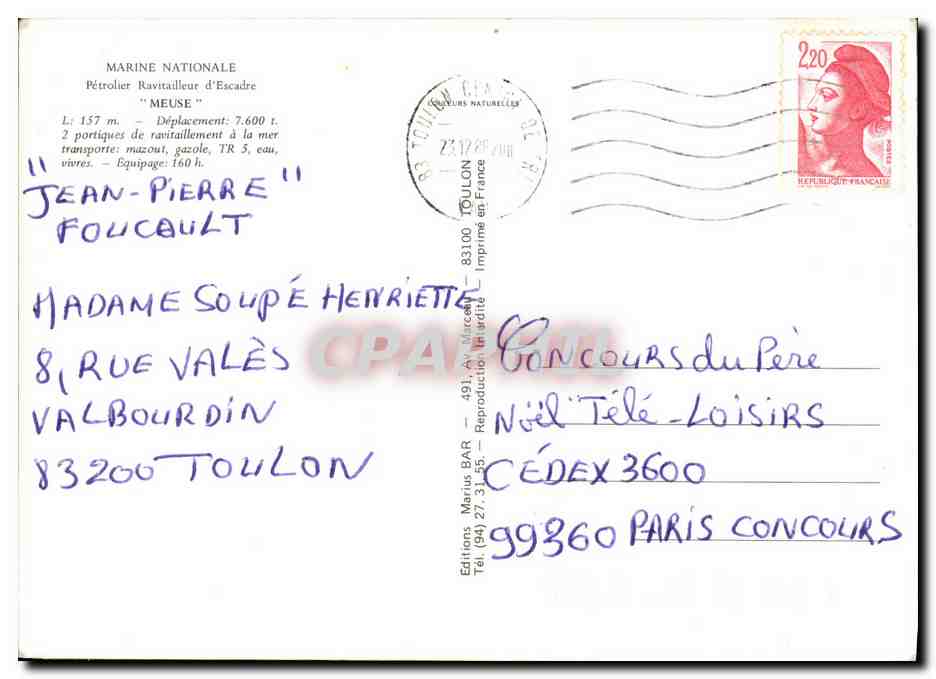 MARINE NATIONALE
Pétrolier Ravitailleur d'Escadre
"MEUSE"
L: 157 m. — Déplacement: 7.600 t.
2 portiques de ravitaillement à la mer
transporte: mazout, gazole, TR 5, eau,
vivres. — Equipage: 160 h.
"JEAN-PIERRE"
FOUCAULT
MADAME SOUPÉ HENRIETTE
8, RUE VALÈS
VALBOURDIN
83200 TOULON
COULEURS NATURELLES
83 TOULON
23.12.88
Editions Marius BAR — 491, Av. Marceau — 83100 TOULON
Tél. (94) 27.31.55. — Reproduction Interdite — Imprimé en France
2,20
POSTES
REPUBLIQUE FRANÇAISE
CPAPHIL
CONCOURS du Père
Noël "Télé-LOISIRS
CÉDEX 3600
99360 PARIS CONCOURS